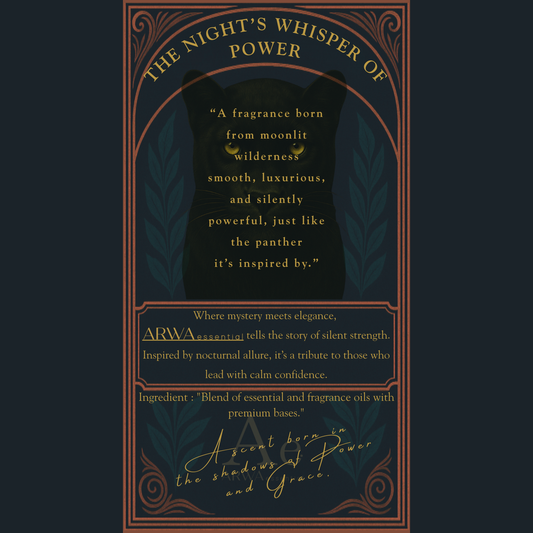 THE NIGHT'S WHISPER OF
POWER
“A fragrance born
from moonlit
wilderness
smooth, luxurious,
and silently
powerful, just like
the panther
it’s inspired by.”
Where mystery meets elegance,
ARWA essential tells the story of silent strength.
Inspired by nocturnal allure, it’s a tribute to those who
lead with calm confidence.
Ingredient : "Blend of essential and fragrance oils with
premium bases."
Ae
ARWA
A scent born in
the shadows of Power
and Grace.